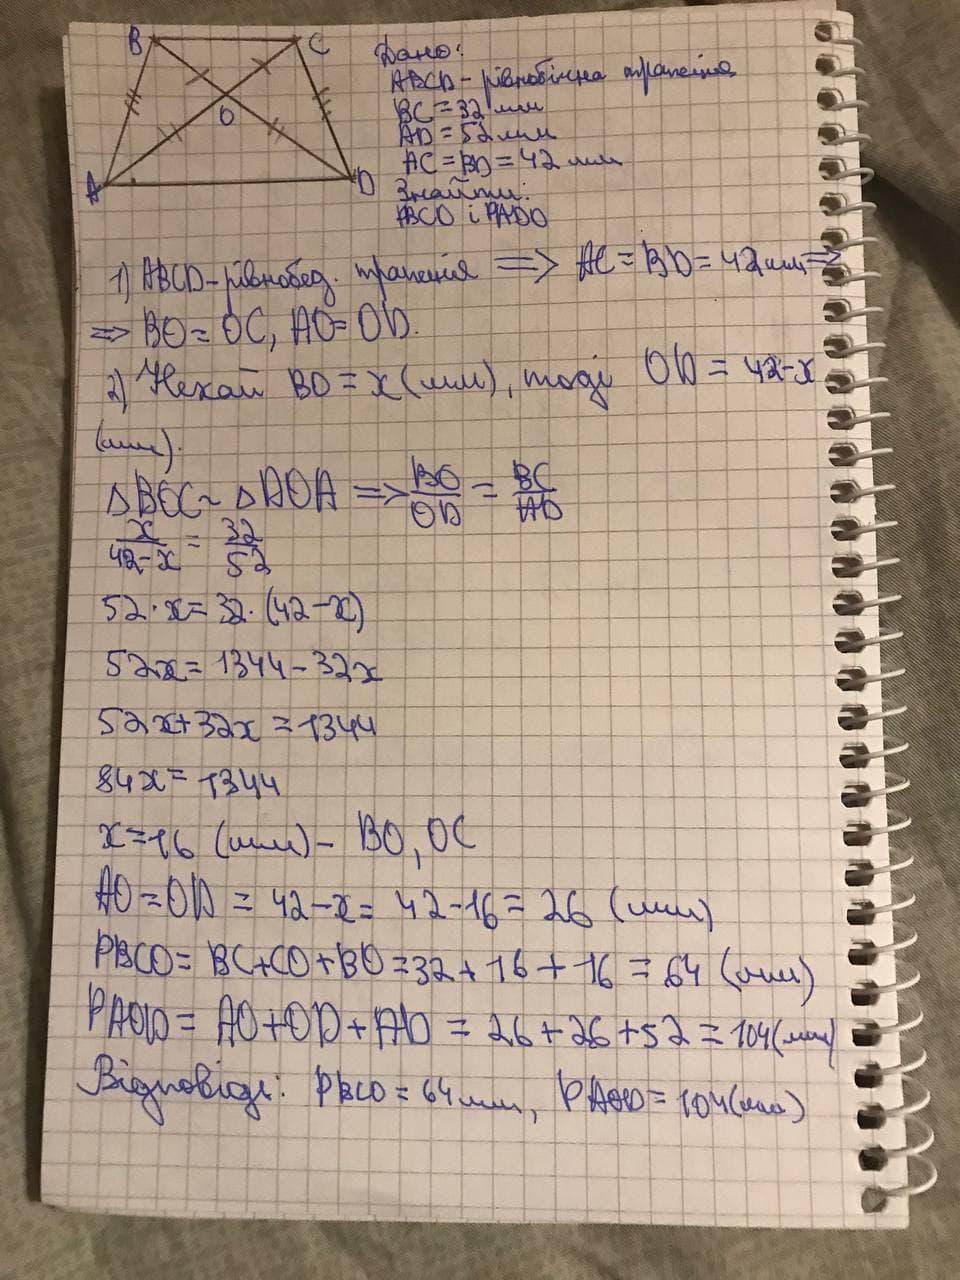 B C
O
A D
Дано:
ABCD - рівнобічна трапеція
BC = 32 мм
AD = 52 мм
AC = BD = 42 мм
Знайти:
PBCO і PADO
1) ABCD - рівнобед. трапеція => AC = BD = 42 мм =>
=> BO = OC, AO = OD.
2) Нехай BO = x (мм), тоді OD = 42-x
(мм).
△BOC ~ △DOA => BO/OD = BC/AD
x/42-x = 32/52
52·x = 32·(42-x)
52x = 1344 - 32x
52x + 32x = 1344
84x = 1344
x = 16 (мм) - BO, OC
AO = OD = 42-x = 42-16 = 26 (мм)
PBCO = BC+CO+BO = 32+16+16 = 64 (мм)
PAOD = AO+OD+AD = 26+26+52 = 104 (мм)
Відповіді: PBCO = 64 мм, PAOD = 104 (мм)